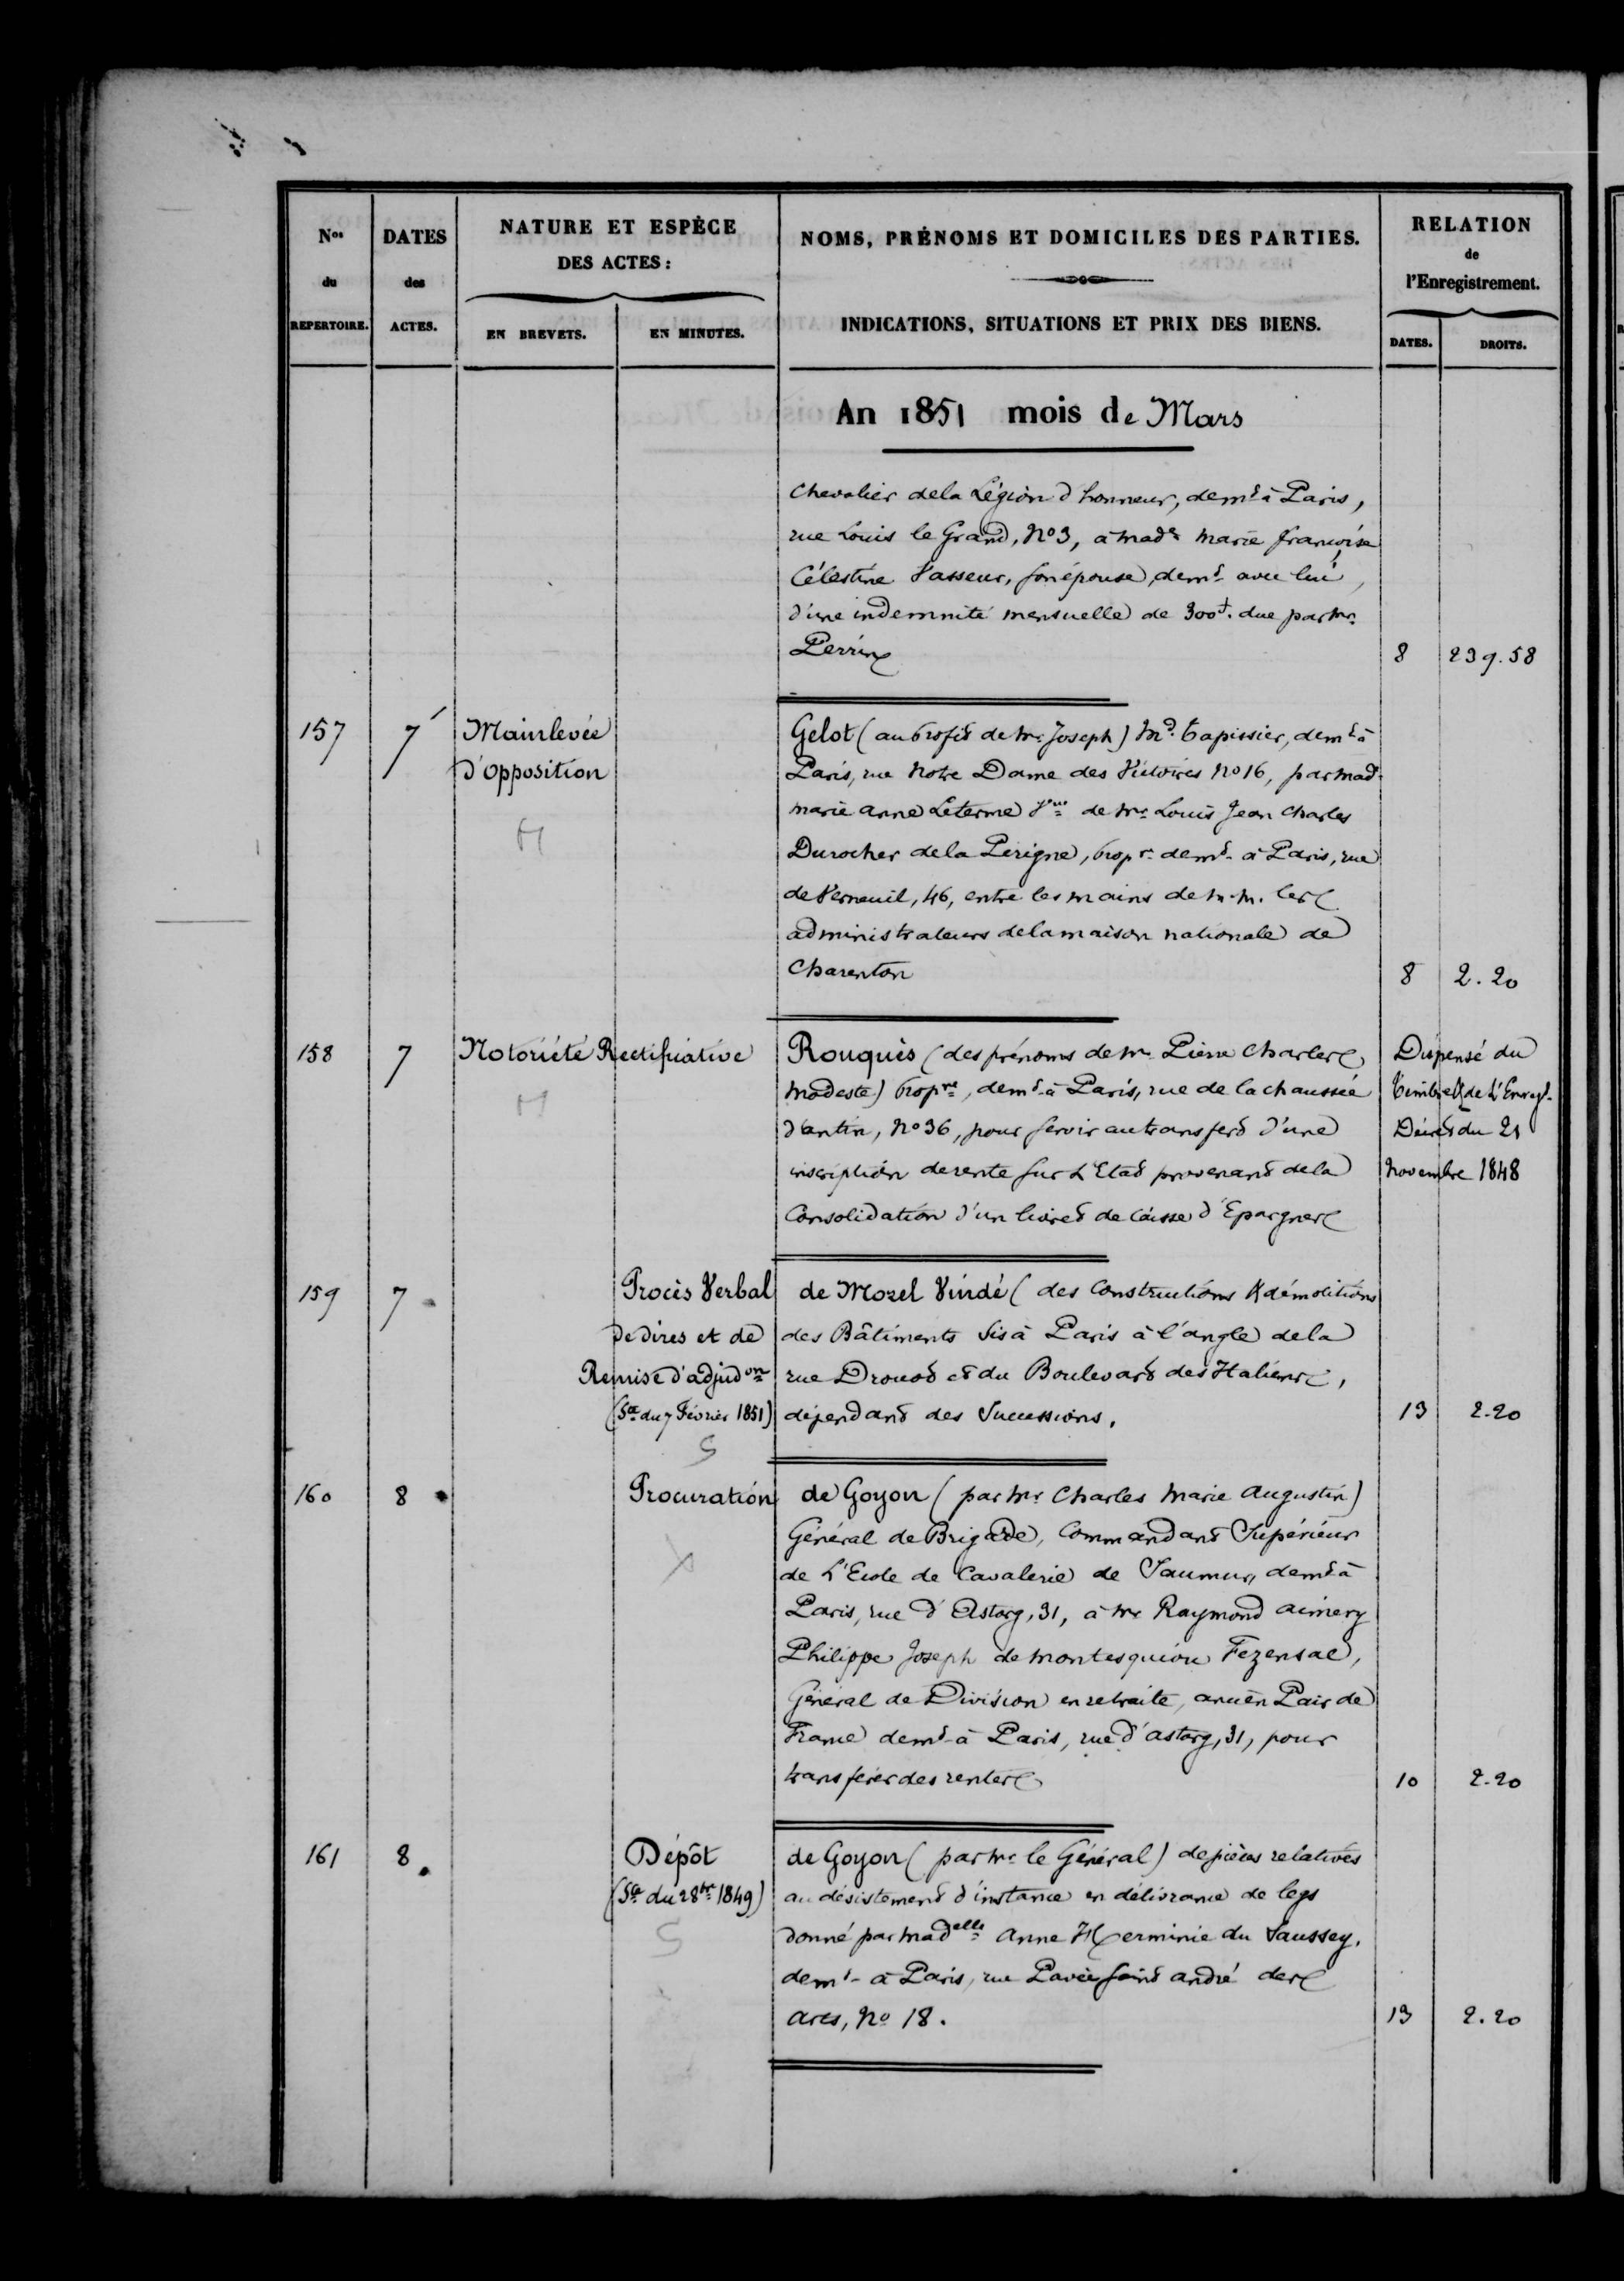 Nos
du
REPERTOIRE.
DATES
des
ACTES.
NATURE ET ESPÈCE
DES ACTES :
EN BREVETS.
EN MINUTES.
NOMS, PRÉNOMS ET DOMICILES DES PARTIES.
INDICATIONS, SITUATIONS ET PRIX DES BIENS.
RELATION
de
l'Enregistrement.
DATES.
DROITS.
An 1851 mois de Mars
Chevalier de la Légion d'honneur, demt à Paris,
rue Louis le Grand, No 3, à Made Marie françoise
Célestine Vasseur, son épouse, demt avec lui,
d'une indemnité mensuelle de 300f. due par Mr
Perrin
8 239.58
157 7 Mainlevée
d'opposition
H
Gelot (au profit de Mr Joseph) Md Tapissier, demt à
Paris, rue Notre Dame des Victoires No 16, par Mad
Marie Anne Leterme Vve de Mr Louis Jean Charles
Durocher de la Perigne, propre demt à Paris, rue
de Verneuil, 46, entre les mains de M.M. les
administrateurs de la maison nationale de
Charenton
8 2.20
158 7 Notoriété Rectificative
H
Rouquès (des prénoms de Mr Pierre Charles
Modeste) propre, demt à Paris, rue de la chaussée
d'antin, No 36, pour servir au transfert d'une
inscription de rente sur L'Etat provenant de la
Consolidation d'un livret de Caisse d'Epargnes
Dispensé du
Timbre & de L'Enregt
Décret du 21
Novembre 1848
159 7
Procès Verbal
de dires et de
Remise d'adjudon
(Ste du 7 Février 1851)
S
de Morel Vindé (des Constructions & démolitions
des Bâtiments sis à Paris à l'angle de la
rue Drouot et du Boulevard des Italiens,
dépendant des Successions.
13 2.20
160 8
Procuration
X
de Goyon (par Mr Charles Marie Augustin)
Général de Brigade, Commandant Supérieur
de L'Ecole de Cavalerie de Saumur, demt à
Paris, rue d'Astorg, 31, à Mr Raymond Aimery
Philippe Joseph de Montesquiou Fezensac,
Général de Division en retraite, ancien Pair de
France demt à Paris, rue d'astorg, 31, pour
transférer des rentes
10 2.20
161 8
Dépôt
(Ste du 28 1849)
S
de Goyon (par Mr le Général) de pièces relatives
au désistement d'instance en délivrance de legs
donné par Madelle Anne Herminie du Saussey,
demt à Paris, rue Pavée saint andré des
arcs, No 18.
13 2.20